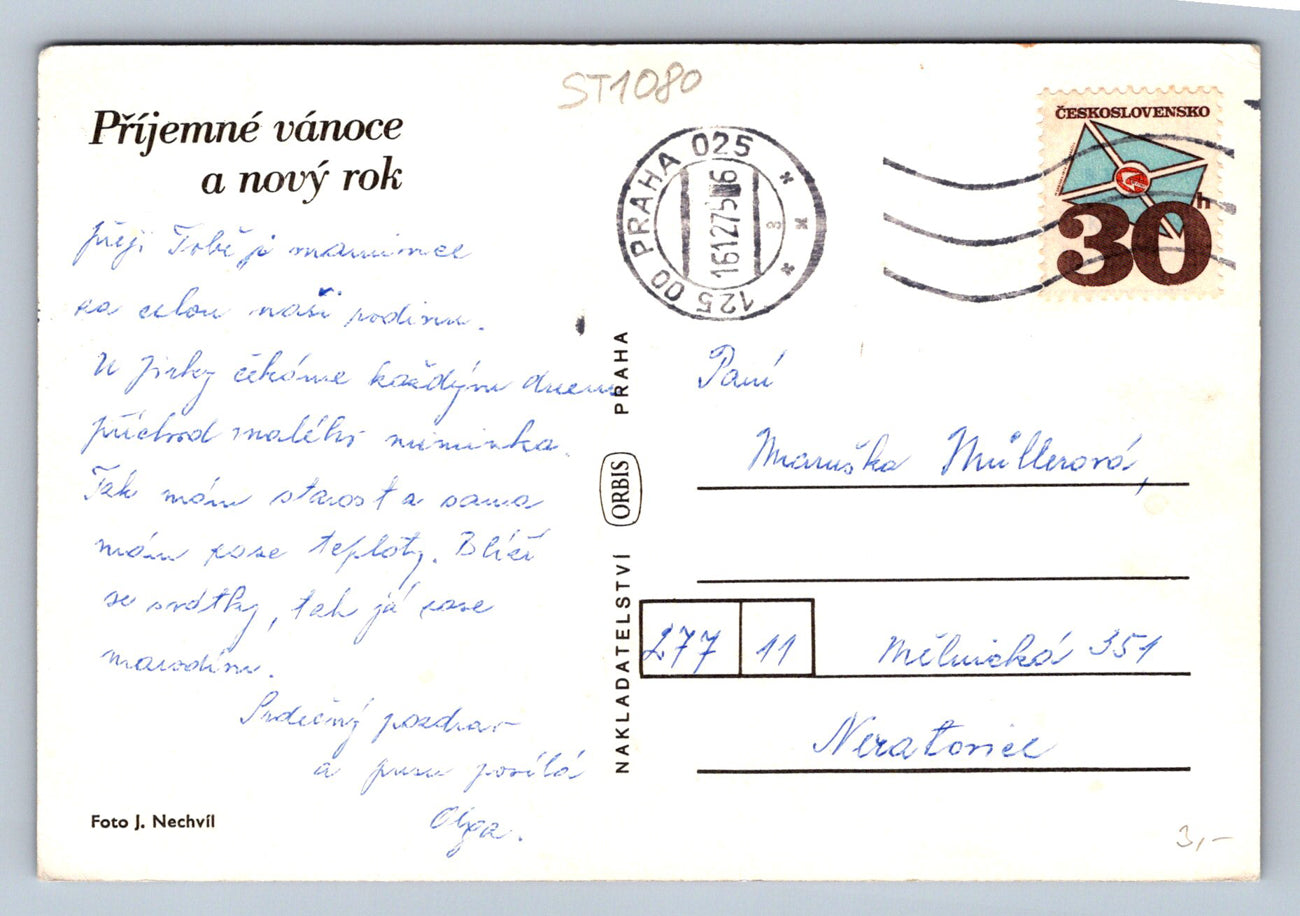 ST1080
Příjemné vánoce
a nový rok
přeji Tobě i mamince
za celou naši rodinu.
U Jirky čekáme každým dnem
příchod malého miminka.
Tak mám starost a sama
mám zase teploty. Blíží
se svátky, tak já zase
marodím.
Srdečný pozdrav
a pusu posílá
Olga.
Foto J. Nechvíl
NAKLADATELSTVÍ ORBIS PRAHA
125 00 PRAHA 025
16.12.75-6
8
125
ČESKOSLOVENSKO
30h
Paní
Maruška Müllerová,
277 11 Mělnická 351
Neratovice
3,-